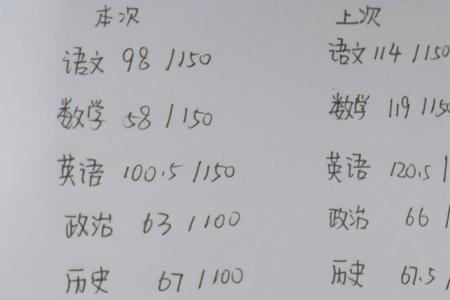 本次 上次
语文 98 /150 语文 114 /150
数学 58 /150 数学 119 /150
英语 100.5 /150 英语 120.5 /
政治 63 /100 政治 66 /
历史 67 /100 历史 67.5 /